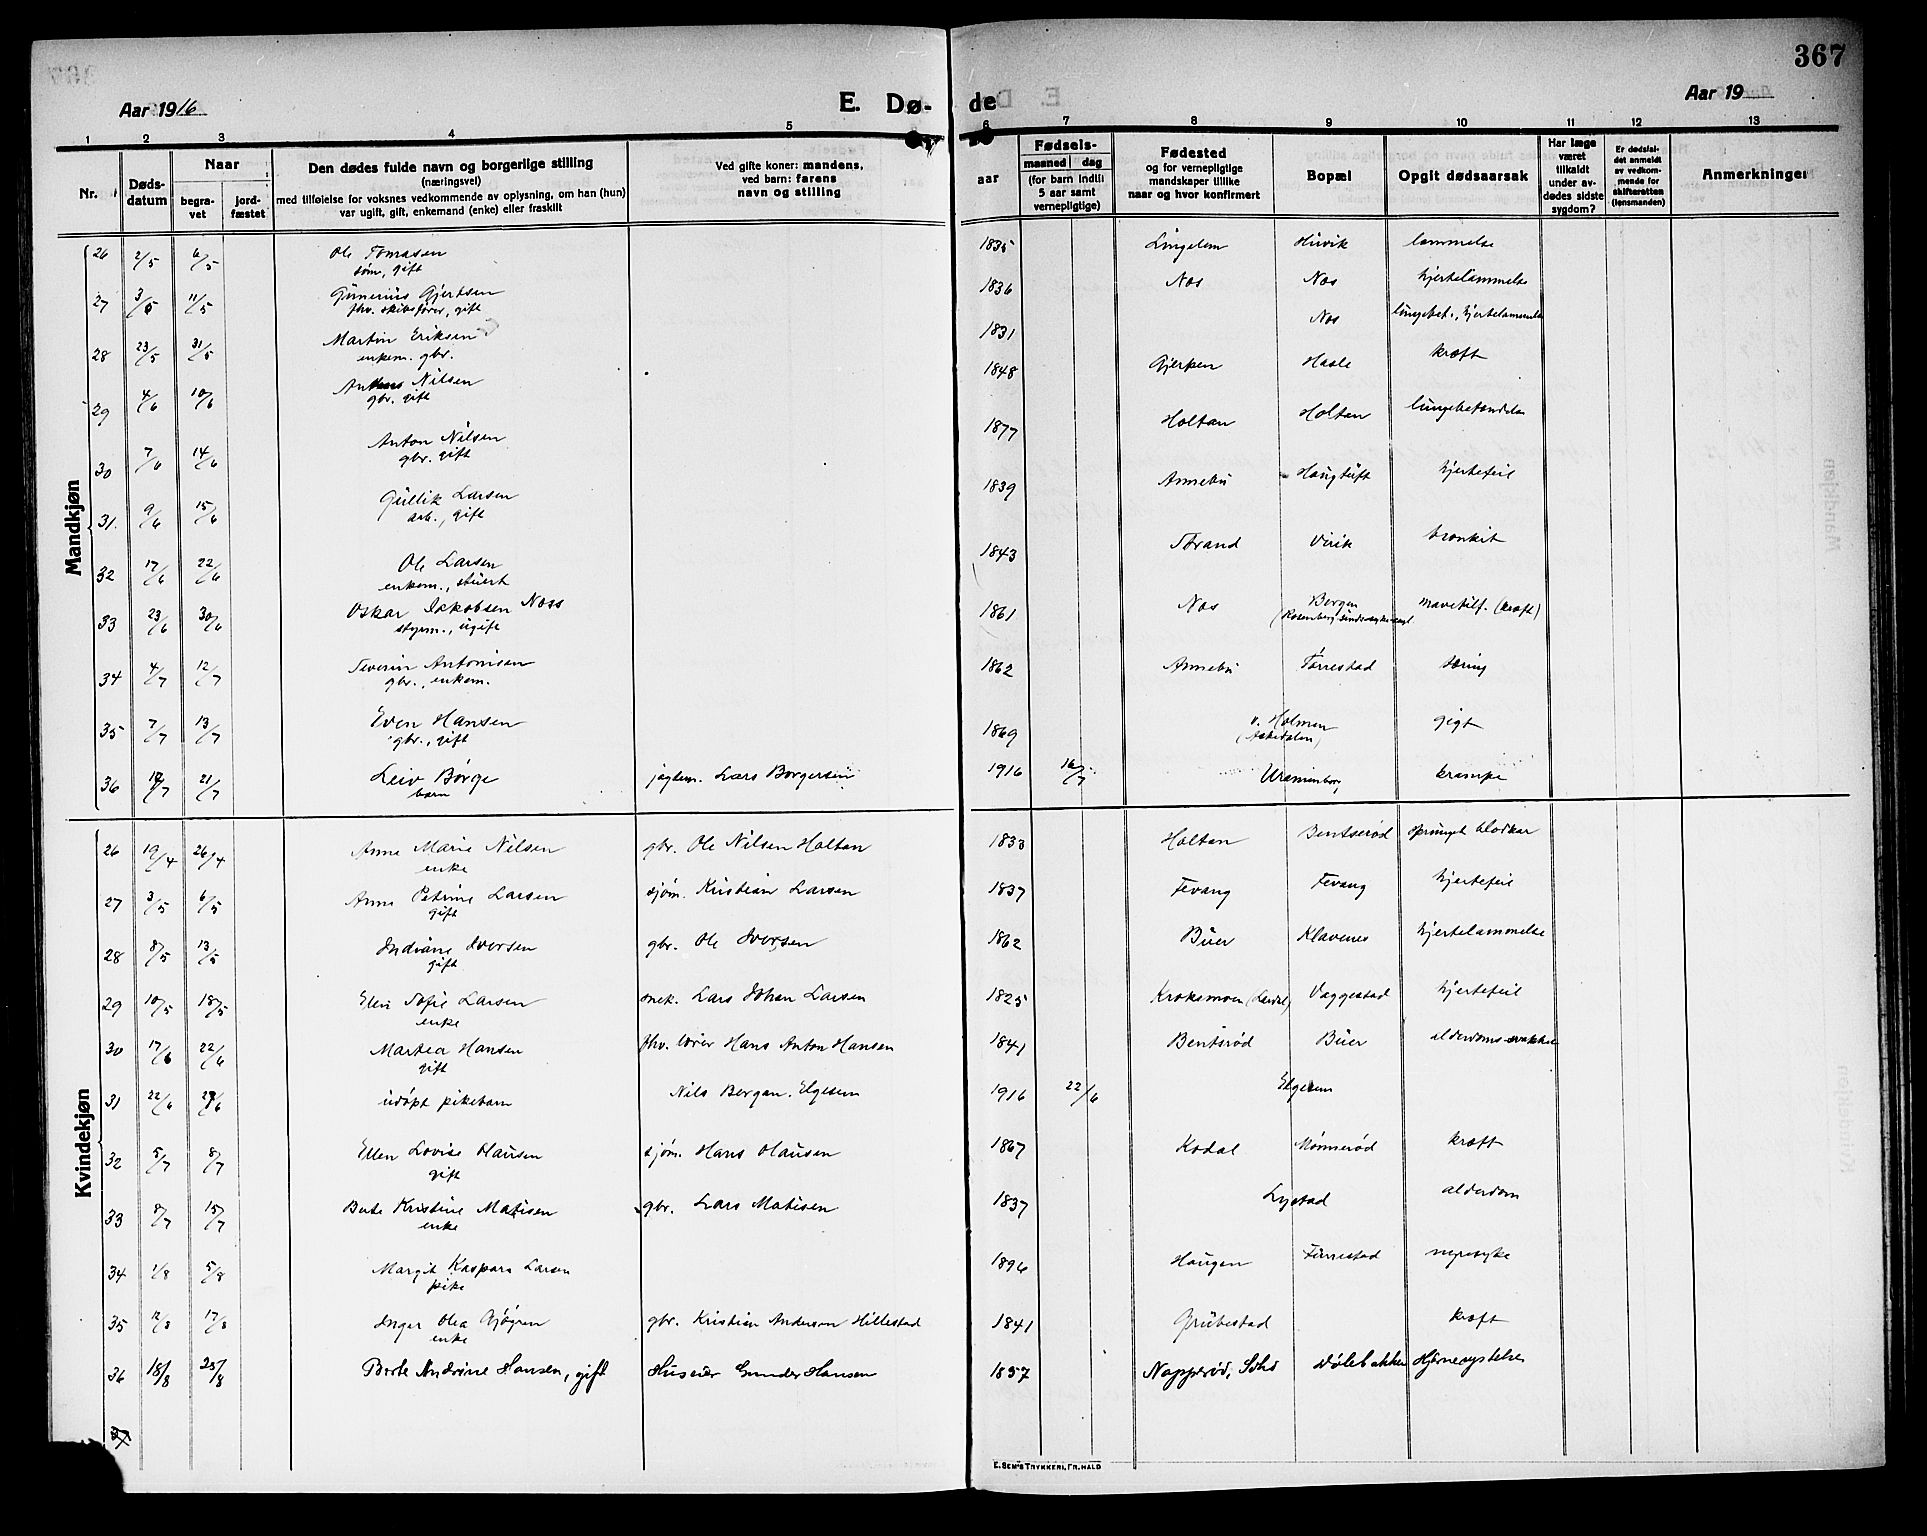 367
Aar 1916
E. Dø-
de
Aar 19
1 2 3 4 5 6 7 8 9 10 11 12 13
Nr.
Døds-
datum
Naar
begra-
vet
jord-
fæstet
Den dødes fulde navn og borgerlige stilling
(næringsvei)
med tilføielse for voksnes vedkommende av oplysning, om han (hun)
var ugift, gift, enkemand (enke) eller fraskilt
Ved gifte koner: mandens,
ved barn: farens
navn og stilling
aar
Fødsels-
maaned dag
(for barn indtil
5 aar samt
vernepligtige)
Fødested
og for vernepligtige
mandskaper tillike
naar og hvor konfirmert
Bopæl
Opgit dødsaarsak
Har læge
været
tilkaldt
under av-
dødes sidste
sygdom?
Er dødsfal-
det anmeldt
av vedkom-
mende for
skifteretten
(lensmanden)
Anmerkninger
Mandkjøn
26 2/5 6/5 Ole Tomasen 1835 Lingelem Huvik lammelse
søm, gift
27 3/5 11/5 Gunerius Gjertsen 1836 Nes Nes hjertelammelse
fhv. skibsfører, gift
28 23/5 31/5 Martin Eriksen 1831 Nes lungebet., hjertelammelse
enkem. gbr.
29 4/6 10/6 Anders Nilsen 1848 Gjerpen Hasle kræft
gbr. gift
30 7/6 14/6 Anton Nilsen 1877 Holtan Holtan lungebetændelse
gbr. gift
31. 9/6 15/6 Gullik Larsen 1839 Annebu Haugtuft hjertefeil
arb., gift
32 17/6 22/6 Ole Larsen 1843 Strand Virik bronkit
enkem., stuert
33 23/6 30/6 Oskar Jakobsen Næss 1861 Nes Bergen mavetilf. (kræft)
styrm., ugift (Rosenberg
34 4/7 12/7 Severin Antonisen 1862 Annebu Torrestad tæring
gbr., enkem.
35 7/7 13/7 Even Hansen 1869 v. Holmen gigt
gbr., gift (Askedalen)
36 19/7 21/7 Leiv Børge jagtem. Lars Borgersen 1916 16/7 Uranienborg krampe
barn
Kvindekjøn
26 19/4 26/4 Anne Marie Nilsen gbr. Ole Nilsen Holtan 1833 Holtan Bentserød sprunget blodkar
enke
27 3/5 6/5 Anne Petrine Larsen sjøm. Kristian Larsen 1837 Fevang Fevang hjertefeil
gift
28 8/5 13/5 Indiane Iversen gbr. Ole Iversen 1862 Buer Klavenes hjertelammelse
gift
29 10/5 18/5 Elen Sofie Larsen snek. Lars Johan Larsen 1825 Kroksmoen (Lardal) Vaggestad hjertefeil
enke
30 17/6 22/6 Martea Hansen fhv. lærer Hans Anton Hansen 1841 Bentsrød Buer alderdoms-svakhet
gift
31 22/6 29/6 udøpt pikebarn Nils Bergan. Elgesem 1916 22/6 Elgesem
32 5/7 8/7 Ellen Lovise Hansen sjøm. Hans Hansen 1867 Kodal Mønnerød kræft
gift
33 8/7 15/7 Berte Kristine Matisen gbr. Lars Matisen 1837 Lystad alderdom
enke
34 1/8 5/8 Margit Kaspara Larsen 1896 Haugen Furrestad nyresyke
pike
35 12/8 17/8 Inger Olea Gjøgren gbr. Kristian Andersen Hillestad 1841 Grubestad kræft
enke
36 18/8 25/8 Berte Andrine Hansen, gift Huseier Gunder Hansen 1857 Napperød, Sdhd Dølebakken Hjernesygdelse
37
E. SEM'S TRYKKERI, FR.HALD